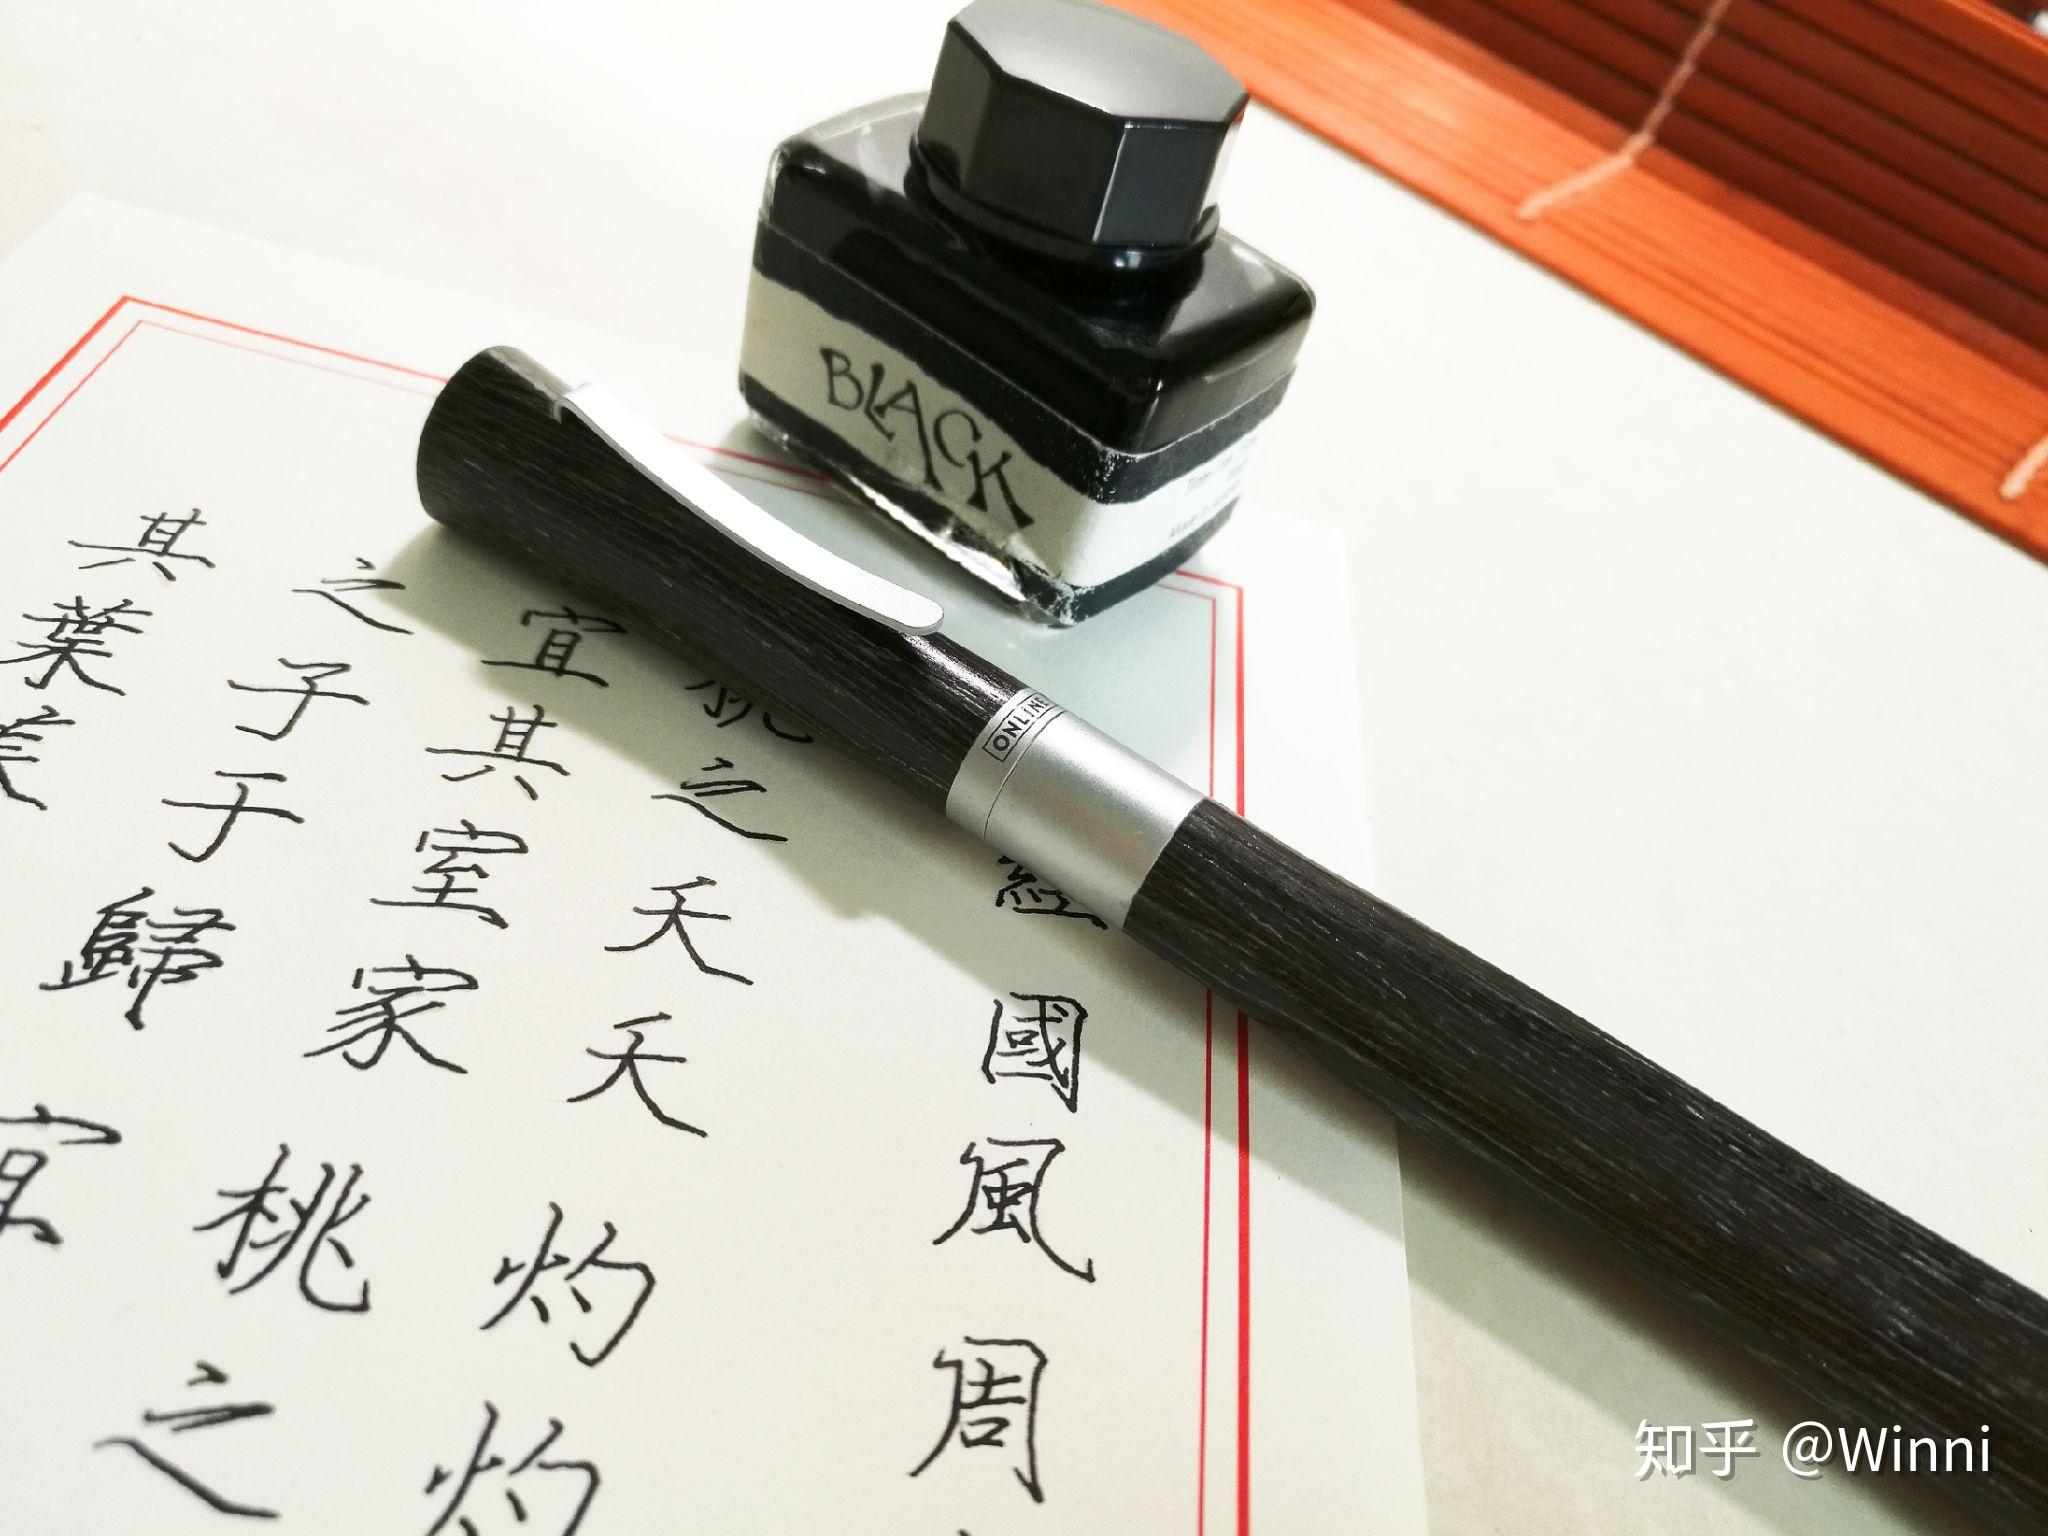 經國風周
桃之夭夭灼灼
宜其室家桃之
之子于歸宜
其葉
BLACK
ONLINE
知乎 @Winni